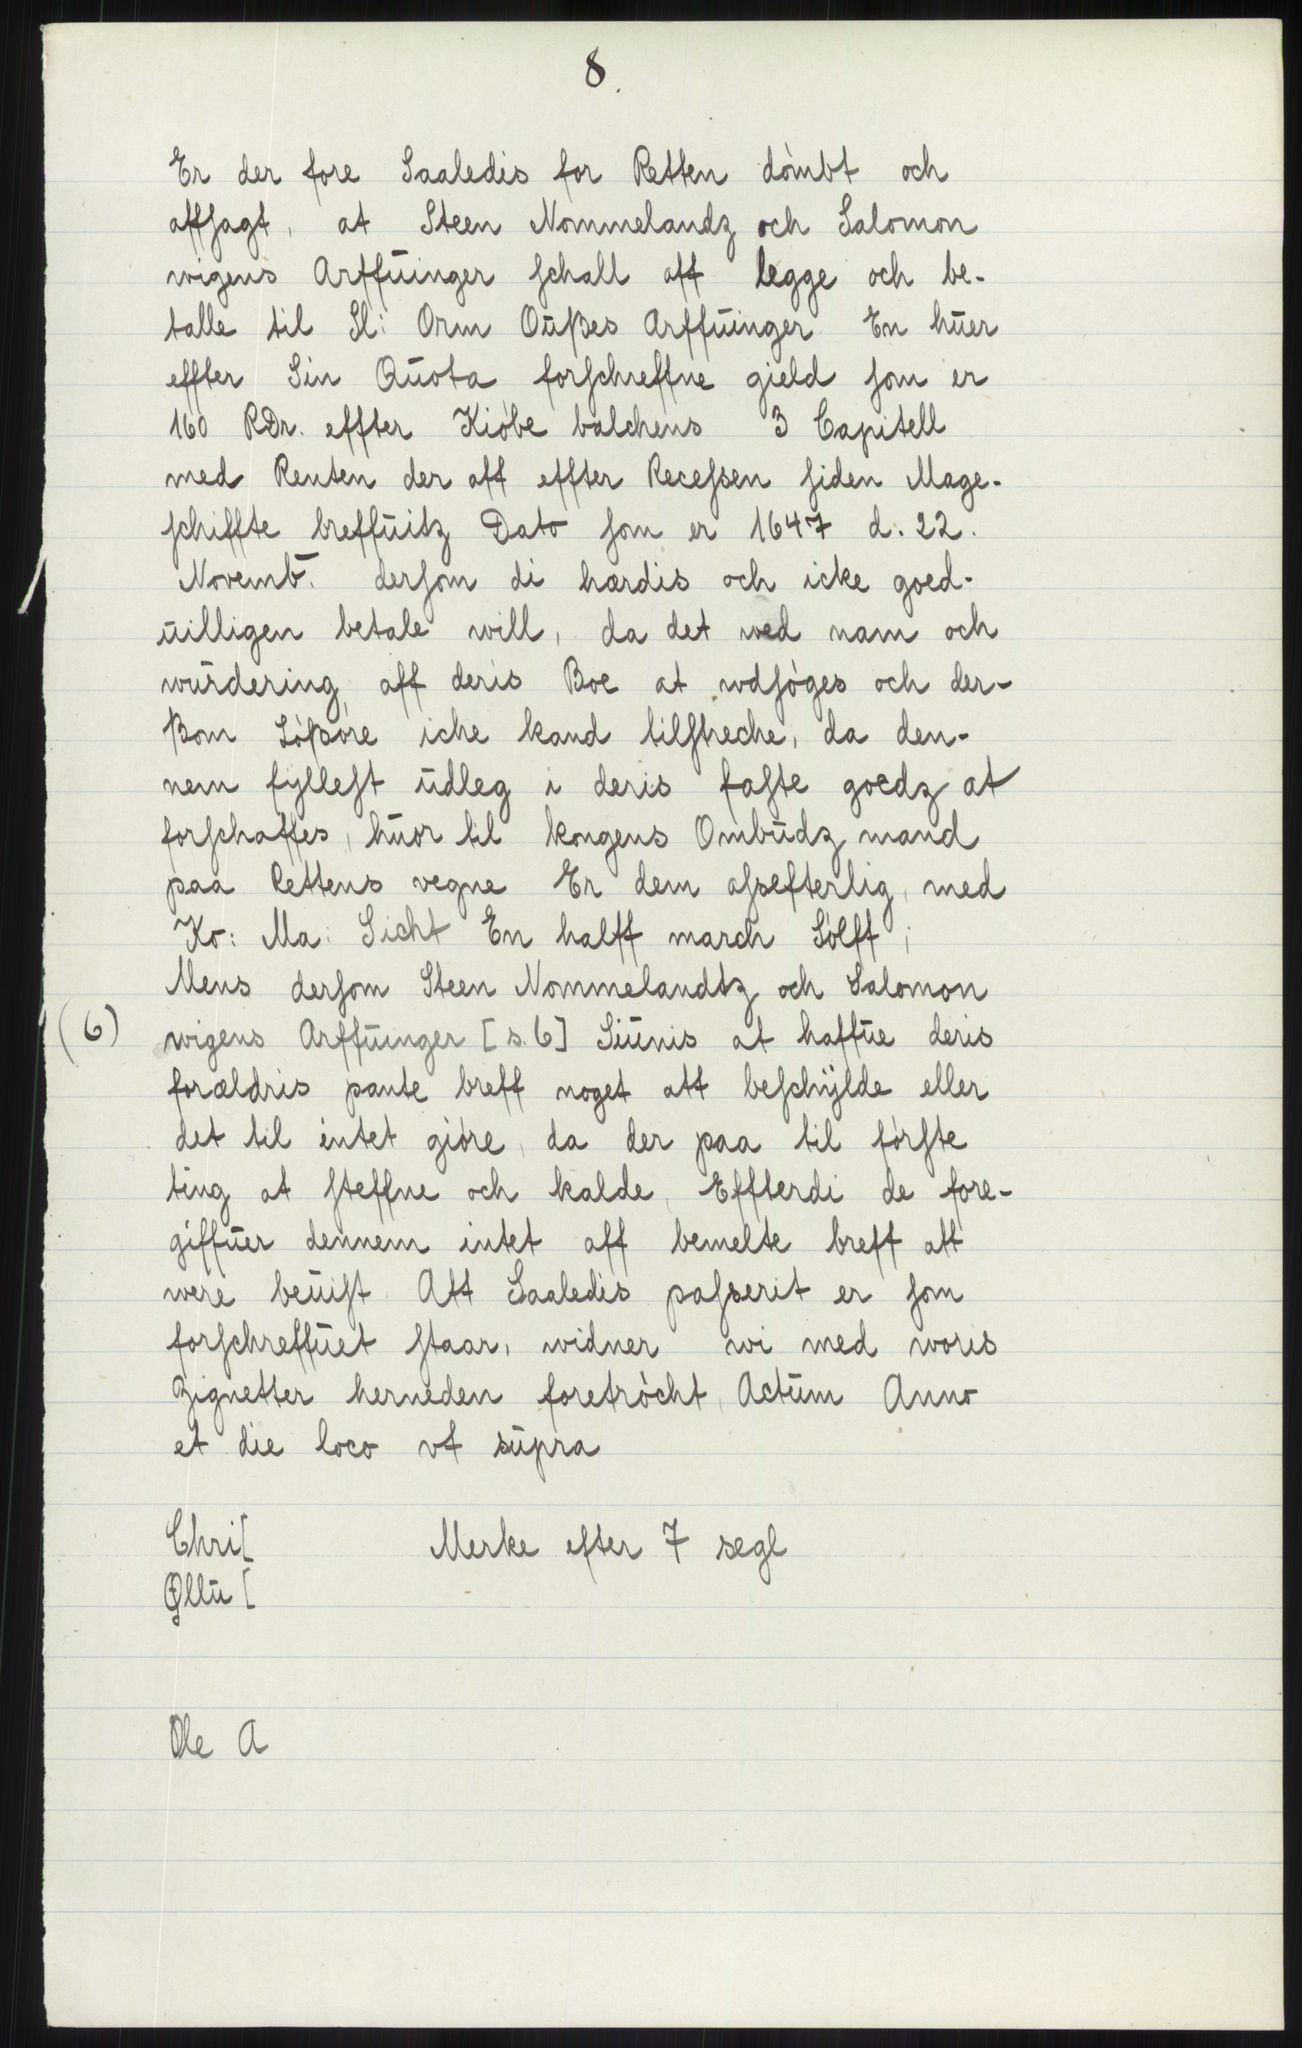 8.
Er der fore Saaledis for Retten dömbt och
affsagt, at Steen Nommelandz och Salomon
wigens Arffuinger schall aff legge och be-
talle til Sl: Orm Oußes Arffuinger En huer
effter Sin Quota forschreffne gield som er
160 RDr. effter Kiöbe balchens 3 Capitell
med Renten der aff effter Recessen siden Mage-
schiffte breffuitz Dato som er 1647 d. 22.
Novemb. dersom di hærdis och icke goed-
uilligen betale will, da det wed nam och
wurdering, aff deris Boe at wdsöges och der-
ßom Lößöre iche kand tilstreche, da den-
nem fyllest udleg i deris faste goedz at
forschaffes, huor til kongens Ombudz mand
paa Rettens vegne Er dem afsefterlig, med
Ko: Ma: Sicht En halff march Sölff;
Mens dersom Steen Nommelandtz och Salomon
(6) wigens Arffuinger [s. 6] Siunis at haffue deris
forældris pante breff noget att beschÿlde eller
det til intet giöre, da der paa til förste
ting at steffne och kalde, Effterdi de fore-
giffuer dennem intet aff bemelte breff att
were beuist. Att Saaledis passerit er som
forschreffuet staar, widner wi med woris
Zignetter herneden foretröcht, Actum Anno
et die loco vt supra
Chri[ Merke efter 7 segl
Øllu [
Ole A